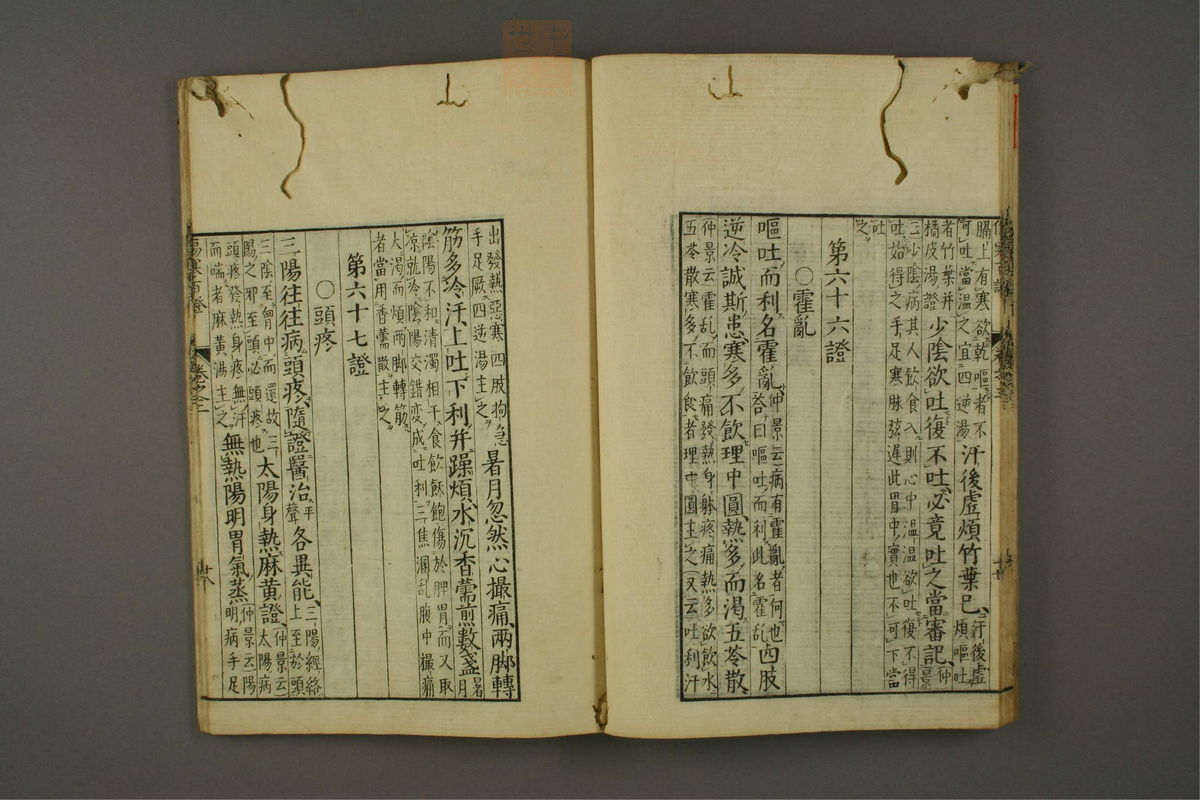 膈上有寒欲乾嘔者不可吐當溫之宜四逆湯汗後虛煩竹葉已汗後虛煩嘔吐
者竹葉并橘皮湯證少陰欲吐復不吐必竟吐之當審記仲景
三少陰病其人飲食入則心中溫溫欲吐復不得吐始得之手足寒脉弦遲此胃中實也不可下當
吐之
第六十六證
○霍亂
嘔吐而利名霍亂仲景云病有霍亂者何也荅曰嘔吐而利此名霍乱四肢
逆冷誠斯患寒多不飲理中圓熱多而渴五苓散
仲景云霍乱而頭痛發熱身躰疼痛熱多欲飲水五苓散寒多不飲食者理中圓主之又云吐利汗
出發熱惡寒四肢拘急手足厥四逆湯主之暑月忽然心撮痛兩脚轉
筋多冷汗上吐下利并躁煩水沉香薷煎數盞暑月
陰陽不和清濁相干食飲飽傷於脾胃而又取凉就冷陰陽交錯変成吐利三焦溷乱腹中撮痛
大渴而煩兩脚轉筋者當用香薷散主之
第六十七證
○頭疼
三陽往往病頭疼隨證醫治平聲各異能三陽經絡上至於頭
三陰至胷中而還故三陽之邪至頭必頭疼也太陽身熱麻黄證仲景云太陽病
頭疼發熱身疼無汗而喘者麻黄湯主之無熱陽明胃氣蒸仲景云陽明病手足
傷寒百證
卷之二
廿八